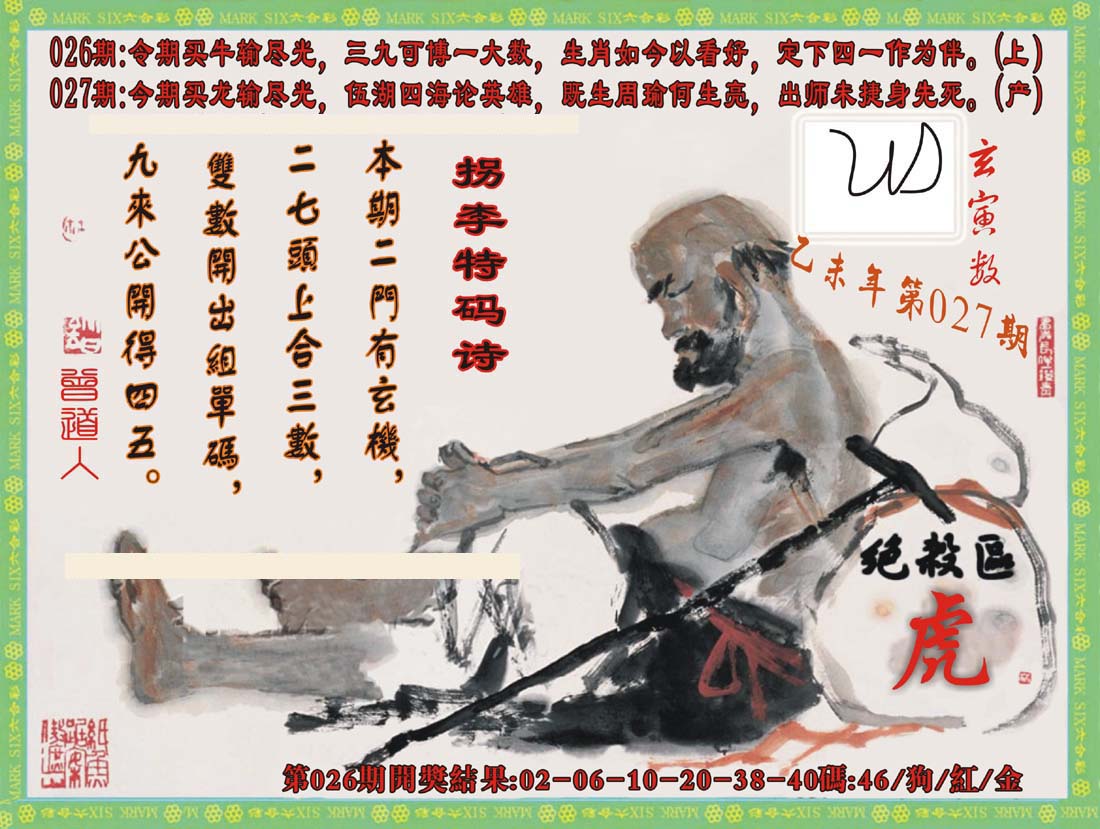 MARK SIX六合彩
026期:令期买牛输尽光，三九可博一大数，生肖如今以看好，定下四一作为伴。(上)
027期:今期买龙输尽光，伍湖四海论英雄，既生周瑜何生亮，出师未捷身先死。(产)
玄寅数
乙未年第027期
拐李特码诗
本期二門有玄機，
二七頭上合三數，
雙數開出組單碼，
九來公開得四五。
曾道人
绝殺區
虎
第026期開獎結果:02-06-10-20-38-40碼:46/狗/紅/金